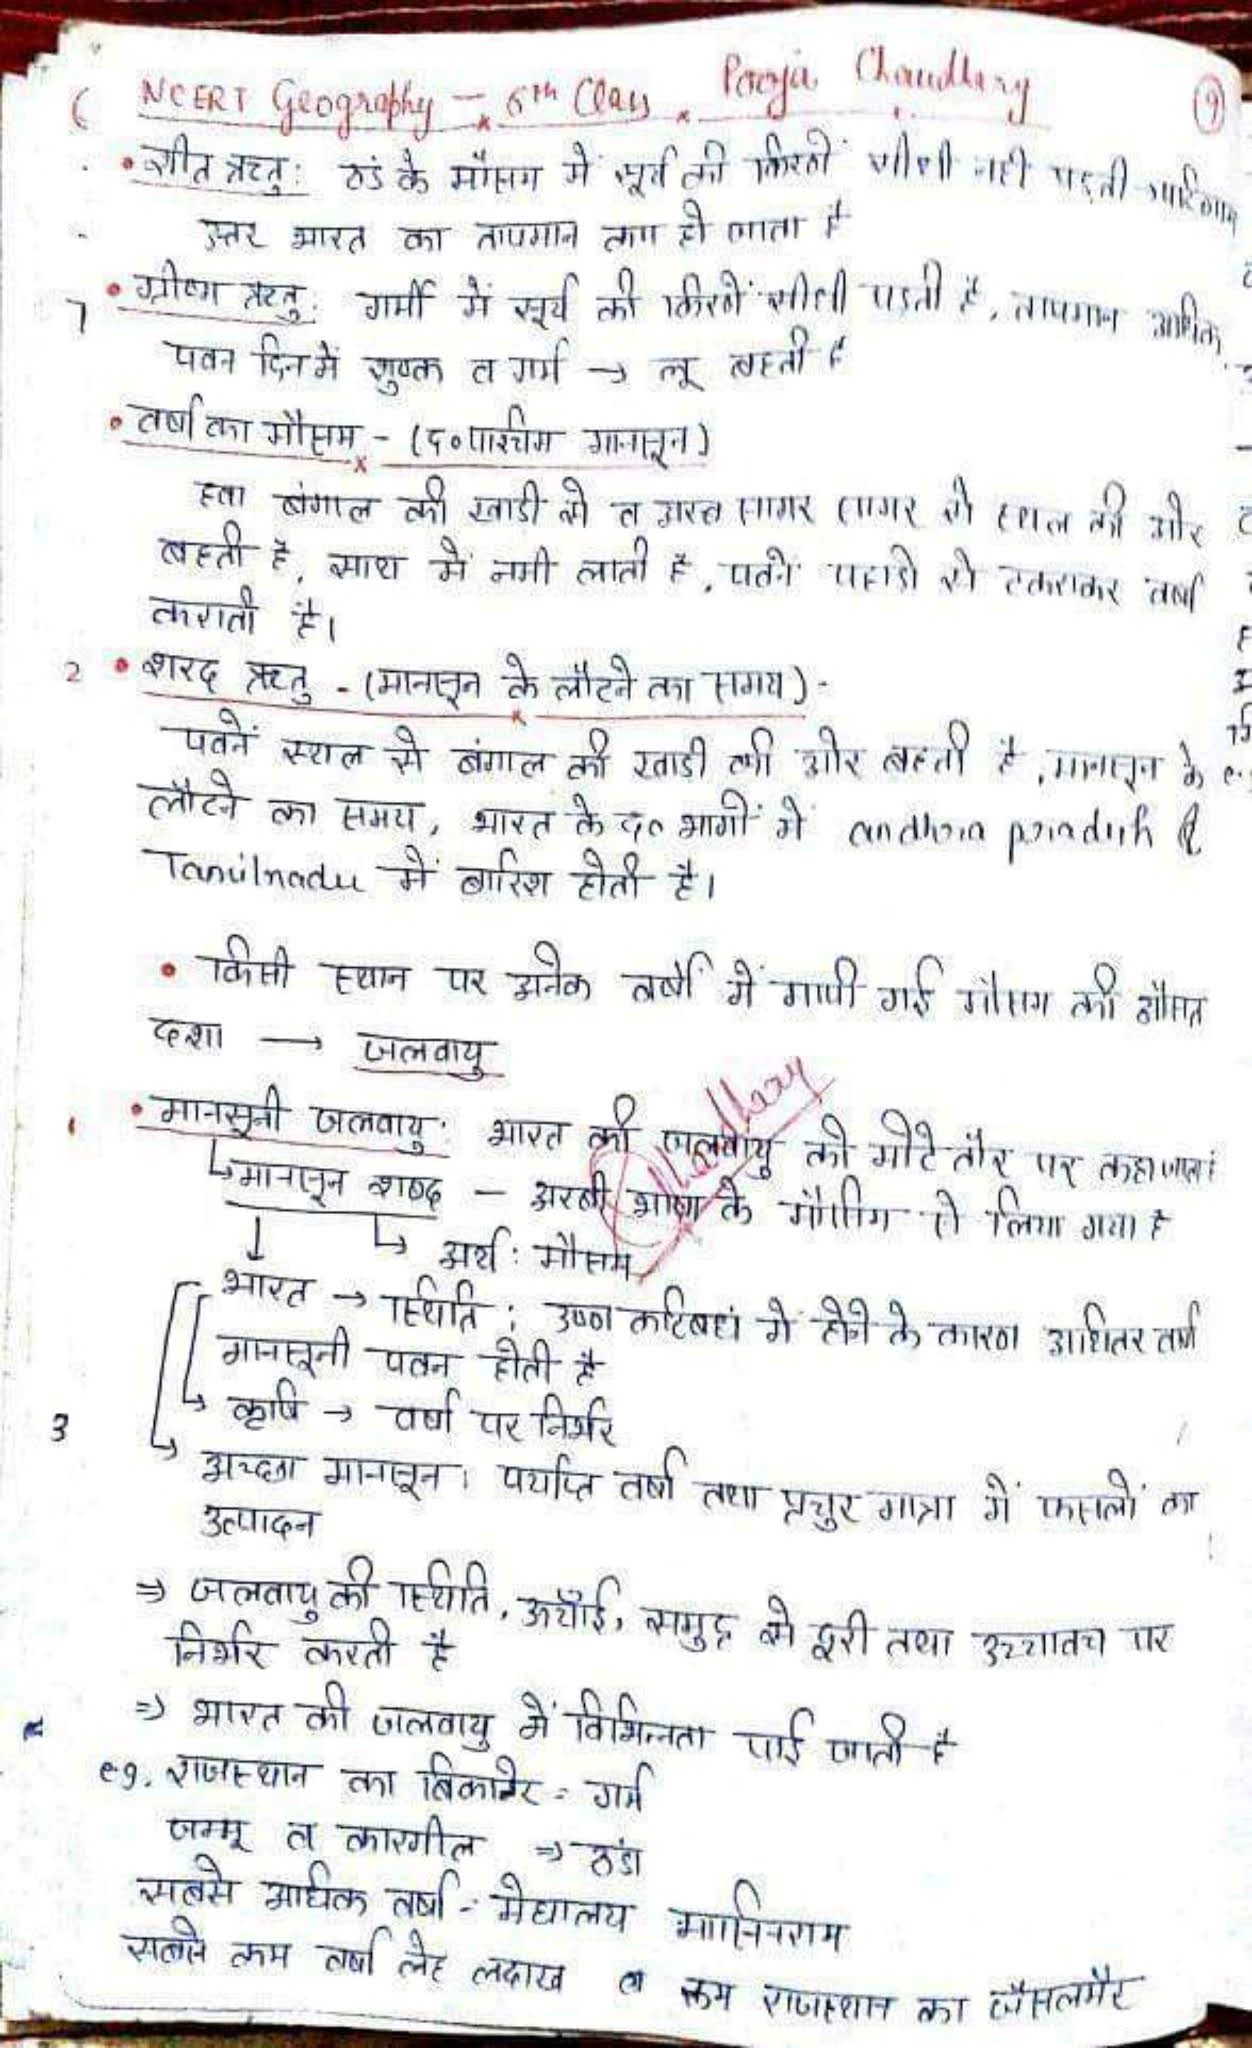 NCERT Geography - 6th Class Pooja Chaudhary 9
• शीत ऋतु: ठंड के मौसम में सूर्य की किरणें सीधी नही पड़ती परिणाम
उत्तर भारत का तापमान कम हो जाता है
• ग्रीष्म ऋतु: गर्मी में सूर्य की किरणें सीधी पड़ती है, तापमान अधिक
पवन दिन में शुष्क व गर्म → लू बहती है
• वर्षा का मौसम - (द० पश्चिम मानसून)
हवा बंगाल की खाडी से व अरब सागर सागर से स्थल की ओर
बहती है, साथ में नमी लाती है, पवनें पहाडो से टकराकर वर्षा
कराती है।
2 • शरद ऋतु - (मानसून के लौटने का समय) -
पवनें स्थल से बंगाल की खाडी की ओर बहती है, मानसून के
लौटने का समय, भारत के द० भागों में andhra pradesh &
Tamilnadu में बारिश होती है।
• किसी स्थान पर अनेक वर्षों में मापी गई मौसम की औसत
दशा → जलवायु
• मानसूनी जलवायु: भारत की जलवायु को मोटे तौर पर कहा जाता
↳ मानसून शब्द - अरबी भाषा के मौसिम से लिया गया है
↓ ↳ अर्थ: मौसम
भारत → स्थिति: उष्ण कटिबंध में होने के कारण अधितर वर्षा
मानसूनी पवन होती है
↳ कृषि → वर्षा पर निर्भर
3 ↳ अच्छा मानसून। पर्याप्त वर्षा तथा प्रचुर मात्रा में फसलों का
उत्पादन
⇒ जलवायु की स्थिति, ऊचाँई, समुद्र से दूरी तथा उच्चावच पर
निर्भर करती है
⇒ भारत की जलवायु में विभिन्नता पाई जाती है
eg. राजस्थान का बिकानेर = गर्म
जम्मू व कारगील ⇒ ठंडा
सबसे अधिक वर्षा = मेघालय मासिनराम
सबसे कम वर्षा लेह लदाख व कम राजस्थान का जैसलमेर